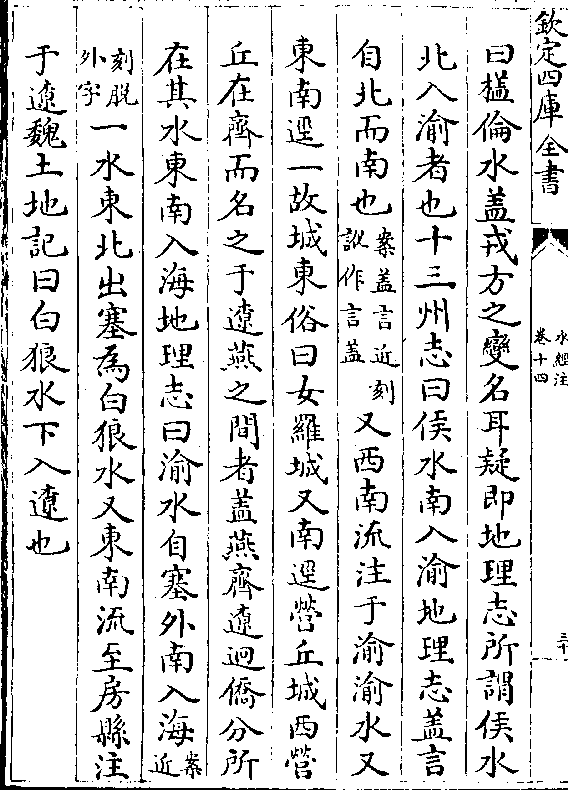 欽定四庫全書
水經注
卷十四
曰榼倫水盖戎方之變名耳疑即地理志所謂侯水
北入渝者也十三州志曰侯水南入渝地理志盖言
自北而南也案盖言近刻訛作言盖又西南流注于渝渝水又
東南逕一故城東俗曰女羅城又南逕營丘城西營
丘在齊而名之于遼燕之間者盖燕齊遼迥僑分所
在其水東南入海地理志曰渝水自塞外南入海案近
刻脱外字一水東北出塞為白狼水又東南流至房縣注
于遼魏土地記曰白狼水下入遼也